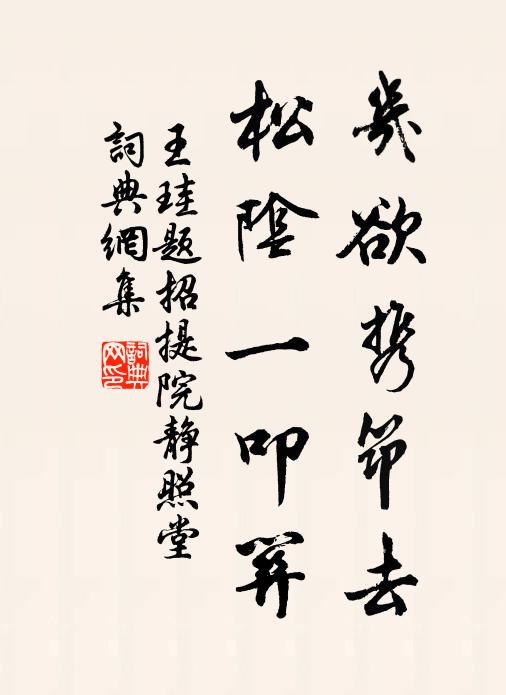 幾欲携筇去
松陰一叩關
王珪题招提院静照堂
詞典網集
詞典网印